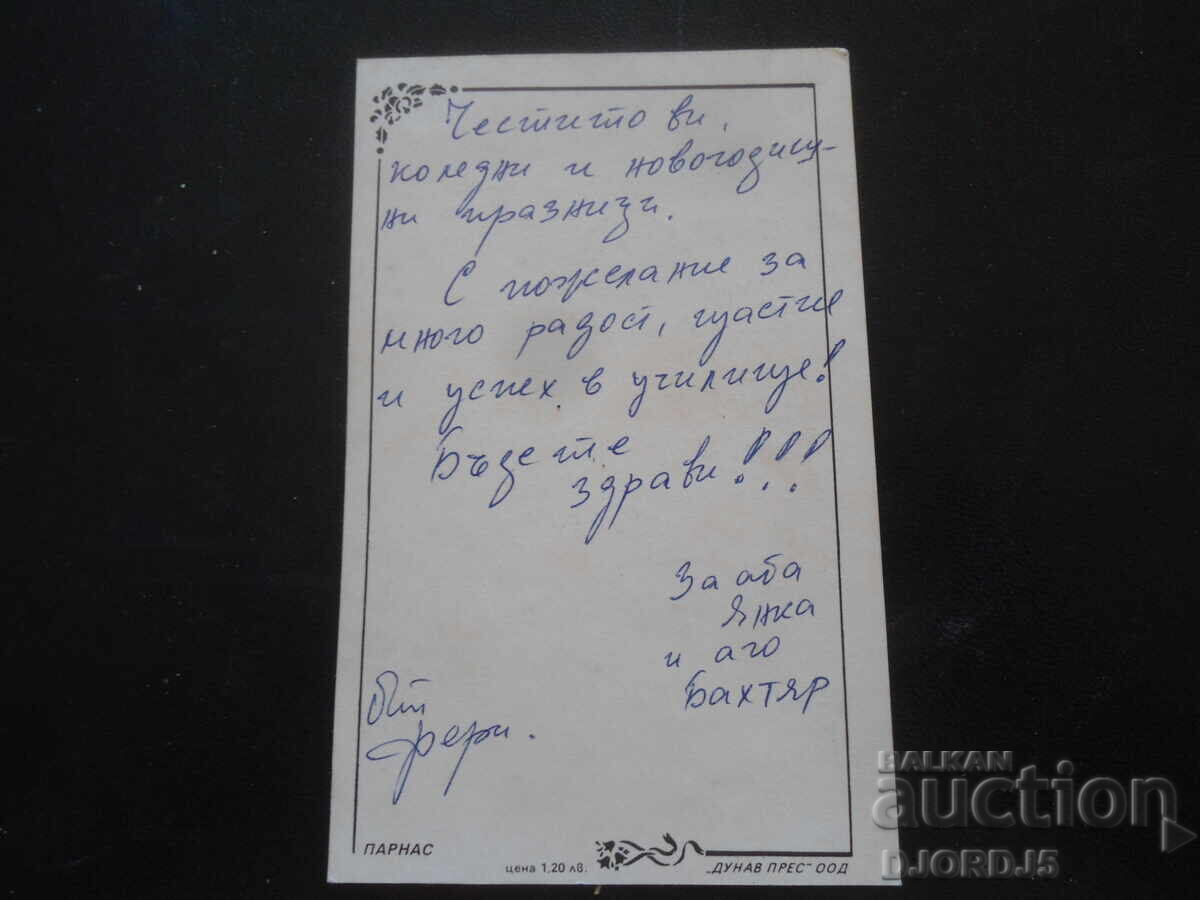 Честито ви,
коледни и новогодиш-
ни празници.
С пожелание за
много радост, щастие
и успех в училище!
Бъдете
здрави!!!
За аба
Янка
и аго
Бахтяр
От
Фери.
ПАРНАС
цена 1,20 лв.
„ДУНАВ ПРЕС" ООД
BALKAN
auction
DJORDJ5